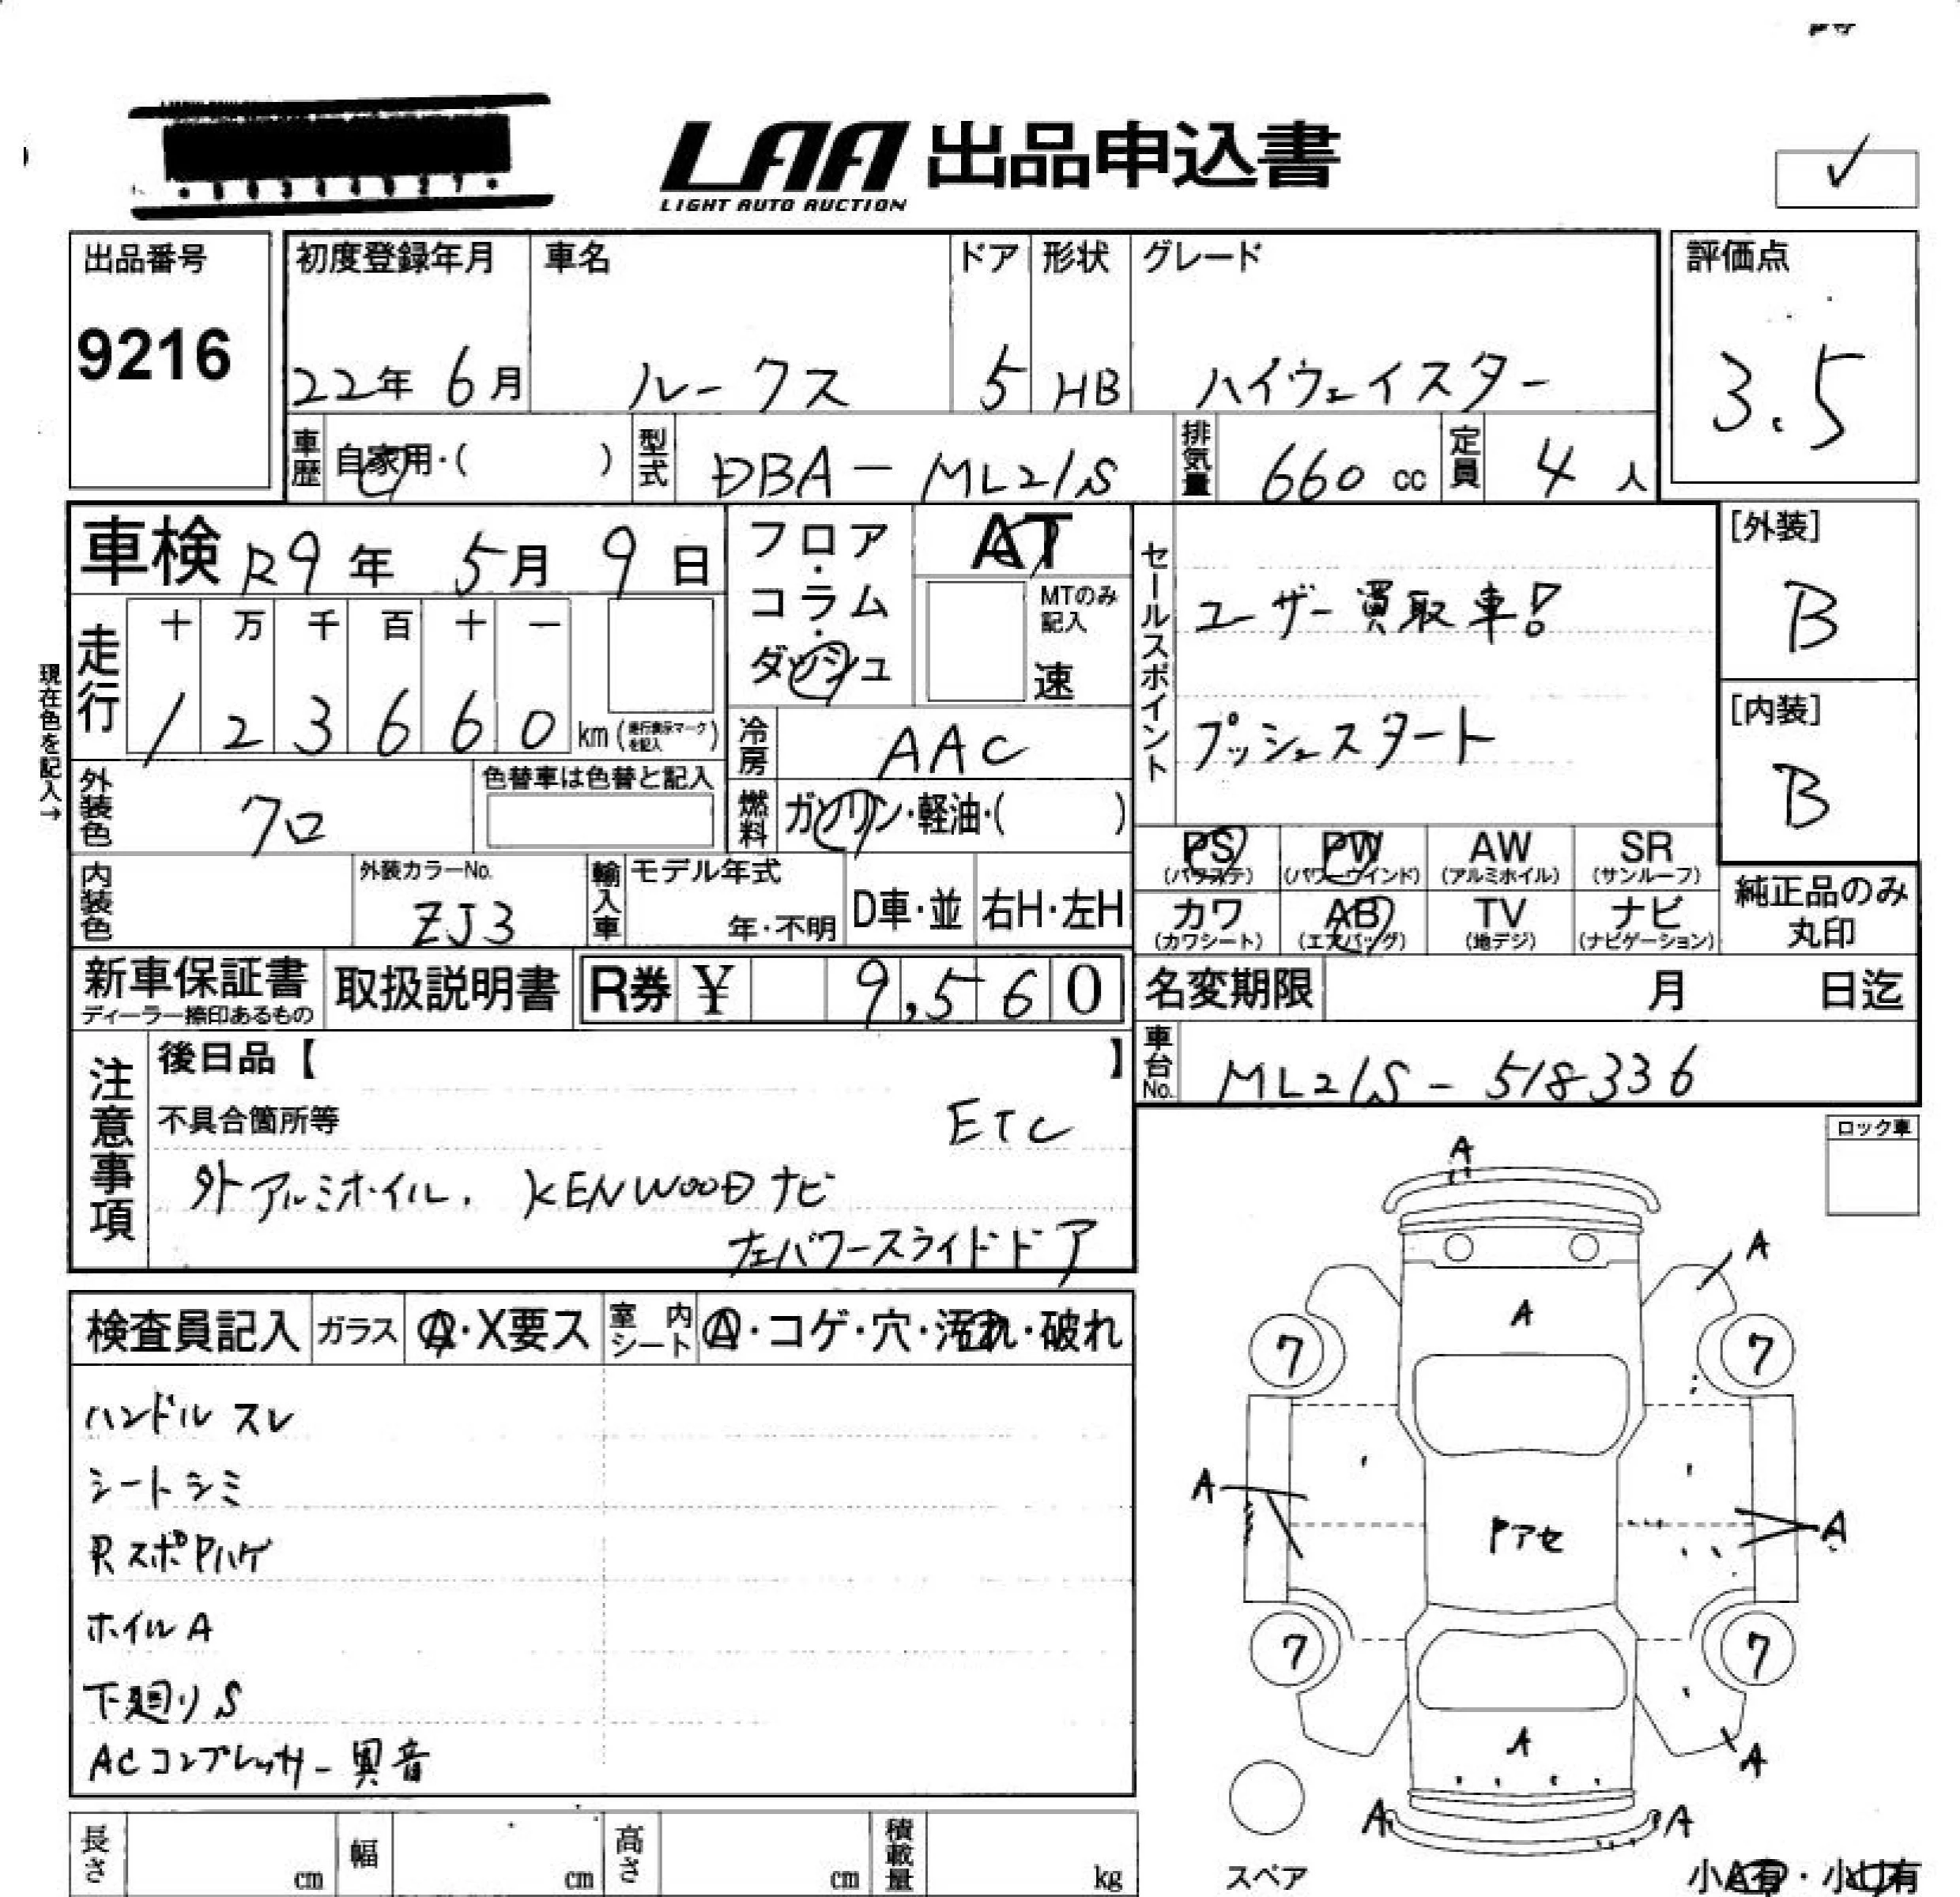 LAA 出品申込書
LIGHT AUTO AUCTION
✓
出品番号
9216
初度登録年月
22年 6月
車名
ルークス
ドア
5
形状
HB
グレード
ハイウェイスター
評価点
3.5
車歴 自家用・( )
型式 DBA-ML21S
排気量 660 cc
定員 4 人
車検 R9年 5月 9日
走行
十 万 千 百 十 一
1 2 3 6 6 0 km (走行表示マークを記入)
現在色を記入→
外装色 クロ
色替車は色替と記入
内装色
外装カラーNo.
ZJ3
フロア・コラム・ダッシュ
AT
MTのみ記入
速
冷房 AAC
燃料 ガソリン・軽油・( )
輸入車
モデル年式
年・不明
D車・並
右H・左H
セールスポイント
ユーザー買取車!
プッシュスタート
[外装]
B
[内装]
B
PS (パワステ)
PW (パワーウインド)
AW (アルミホイル)
SR (サンルーフ)
カワ (カワシート)
AB (エアバッグ)
TV (地デジ)
ナビ (ナビゲーション)
純正品のみ
丸印
新車保証書
ディーラー捺印あるもの
取扱説明書
R券 ¥ 9,560
名変期限 月 日迄
車台No. ML21S-518336
注意事項
後日品【 】
不具合箇所等
ETC
外アルミホイル. KENWOODナビ
左パワースライドドア
ロック車
検査員記入
ガラス A・X要ス
室内シート A・コゲ・穴・汚れ・破れ
ハンドルスレ
シートシミ
RスポPハゲ
ホイルA
下廻りS
ACコンプレッサー異音
A
A
A
7 7
A
A
Pアセ
7 7
A
A
A
A
スペア
小A有・小U有
長さ cm
幅 cm
高さ cm
積載量 kg